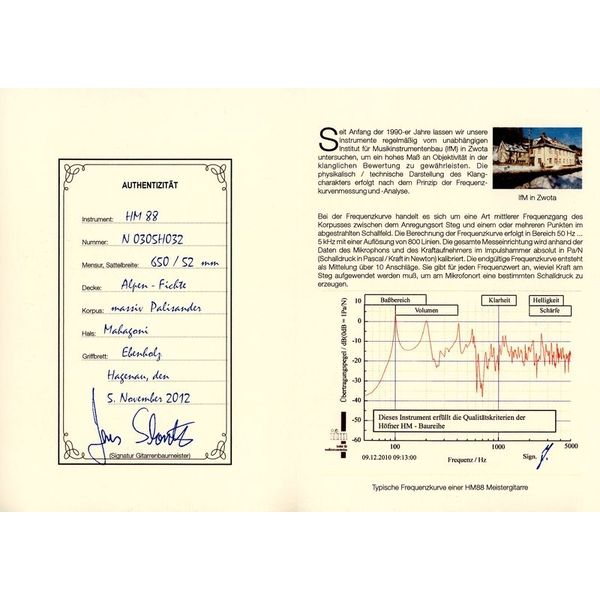 AUTHENTIZITÄT
Instrument: HM 88
Nummer: N 0305H032
Mensur, Sattelbreite: 650 / 52 mm
Decke: Alpen - Fichte
Korpus: massiv Palisander
Hals: Mahagoni
Griffbrett: Ebenholz
Hagenau, den
5. November 2012
(Signatur Gitarrenbaumeister)
Seit Anfang der 1990-er Jahre lassen wir unsere
Instrumente regelmäßig vom unabhängigen
Institut für Musikinstrumentenbau (IfM) in Zwota
untersuchen, um ein hohes Maß an Objektivität in der
klanglichen Bewertung zu gewährleisten. Die
physikalisch / technische Darstellung des Klang-
charakters erfolgt nach dem Prinzip der Frequenz-
kurvenmessung und -Analyse.
IfM in Zwota
Bei der Frequenzkurve handelt es sich um eine Art mittlerer Frequenzgang des
Korpusses zwischen dem Anregungsort Steg und einem oder mehreren Punkten im
abgestrahlten Schallfeld. Die Berechnung der Frequenzkurve erfolgt in Bereich 50 Hz ...
5 kHz mit einer Auflösung von 800 Linien. Die gesamte Messeinrichtung wird anhand der
Daten des Mikrophons und des Kraftaufnehmers im Impulshammer absolut in Pa/N
(Schalldruck in Pascal / Kraft in Newton) kalibriert. Die endgültige Frequenzkurve entsteht
als Mittelung über 10 Anschläge. Sie gibt für jeden Frequenzwert an, wieviel Kraft am
Steg aufgewendet werden muß, um am Mikrofonort eine bestimmten Schalldruck zu
erzeugen.
Baßbereich
Klarheit
Helligkeit
Volumen
Schärfe
Übertragungspegel / dB(0dB = 1Pa/N)
10
0
-10
-20
-30
-40
-50
-60
Dieses Instrument erfüllt die Qualitätskriterien der
Höfner HM - Baureihe
100
1000
5000
09.12.2010 09:13:00
Frequenz / Hz
Sign.
Typische Frequenzkurve einer HM88 Meistergitarre